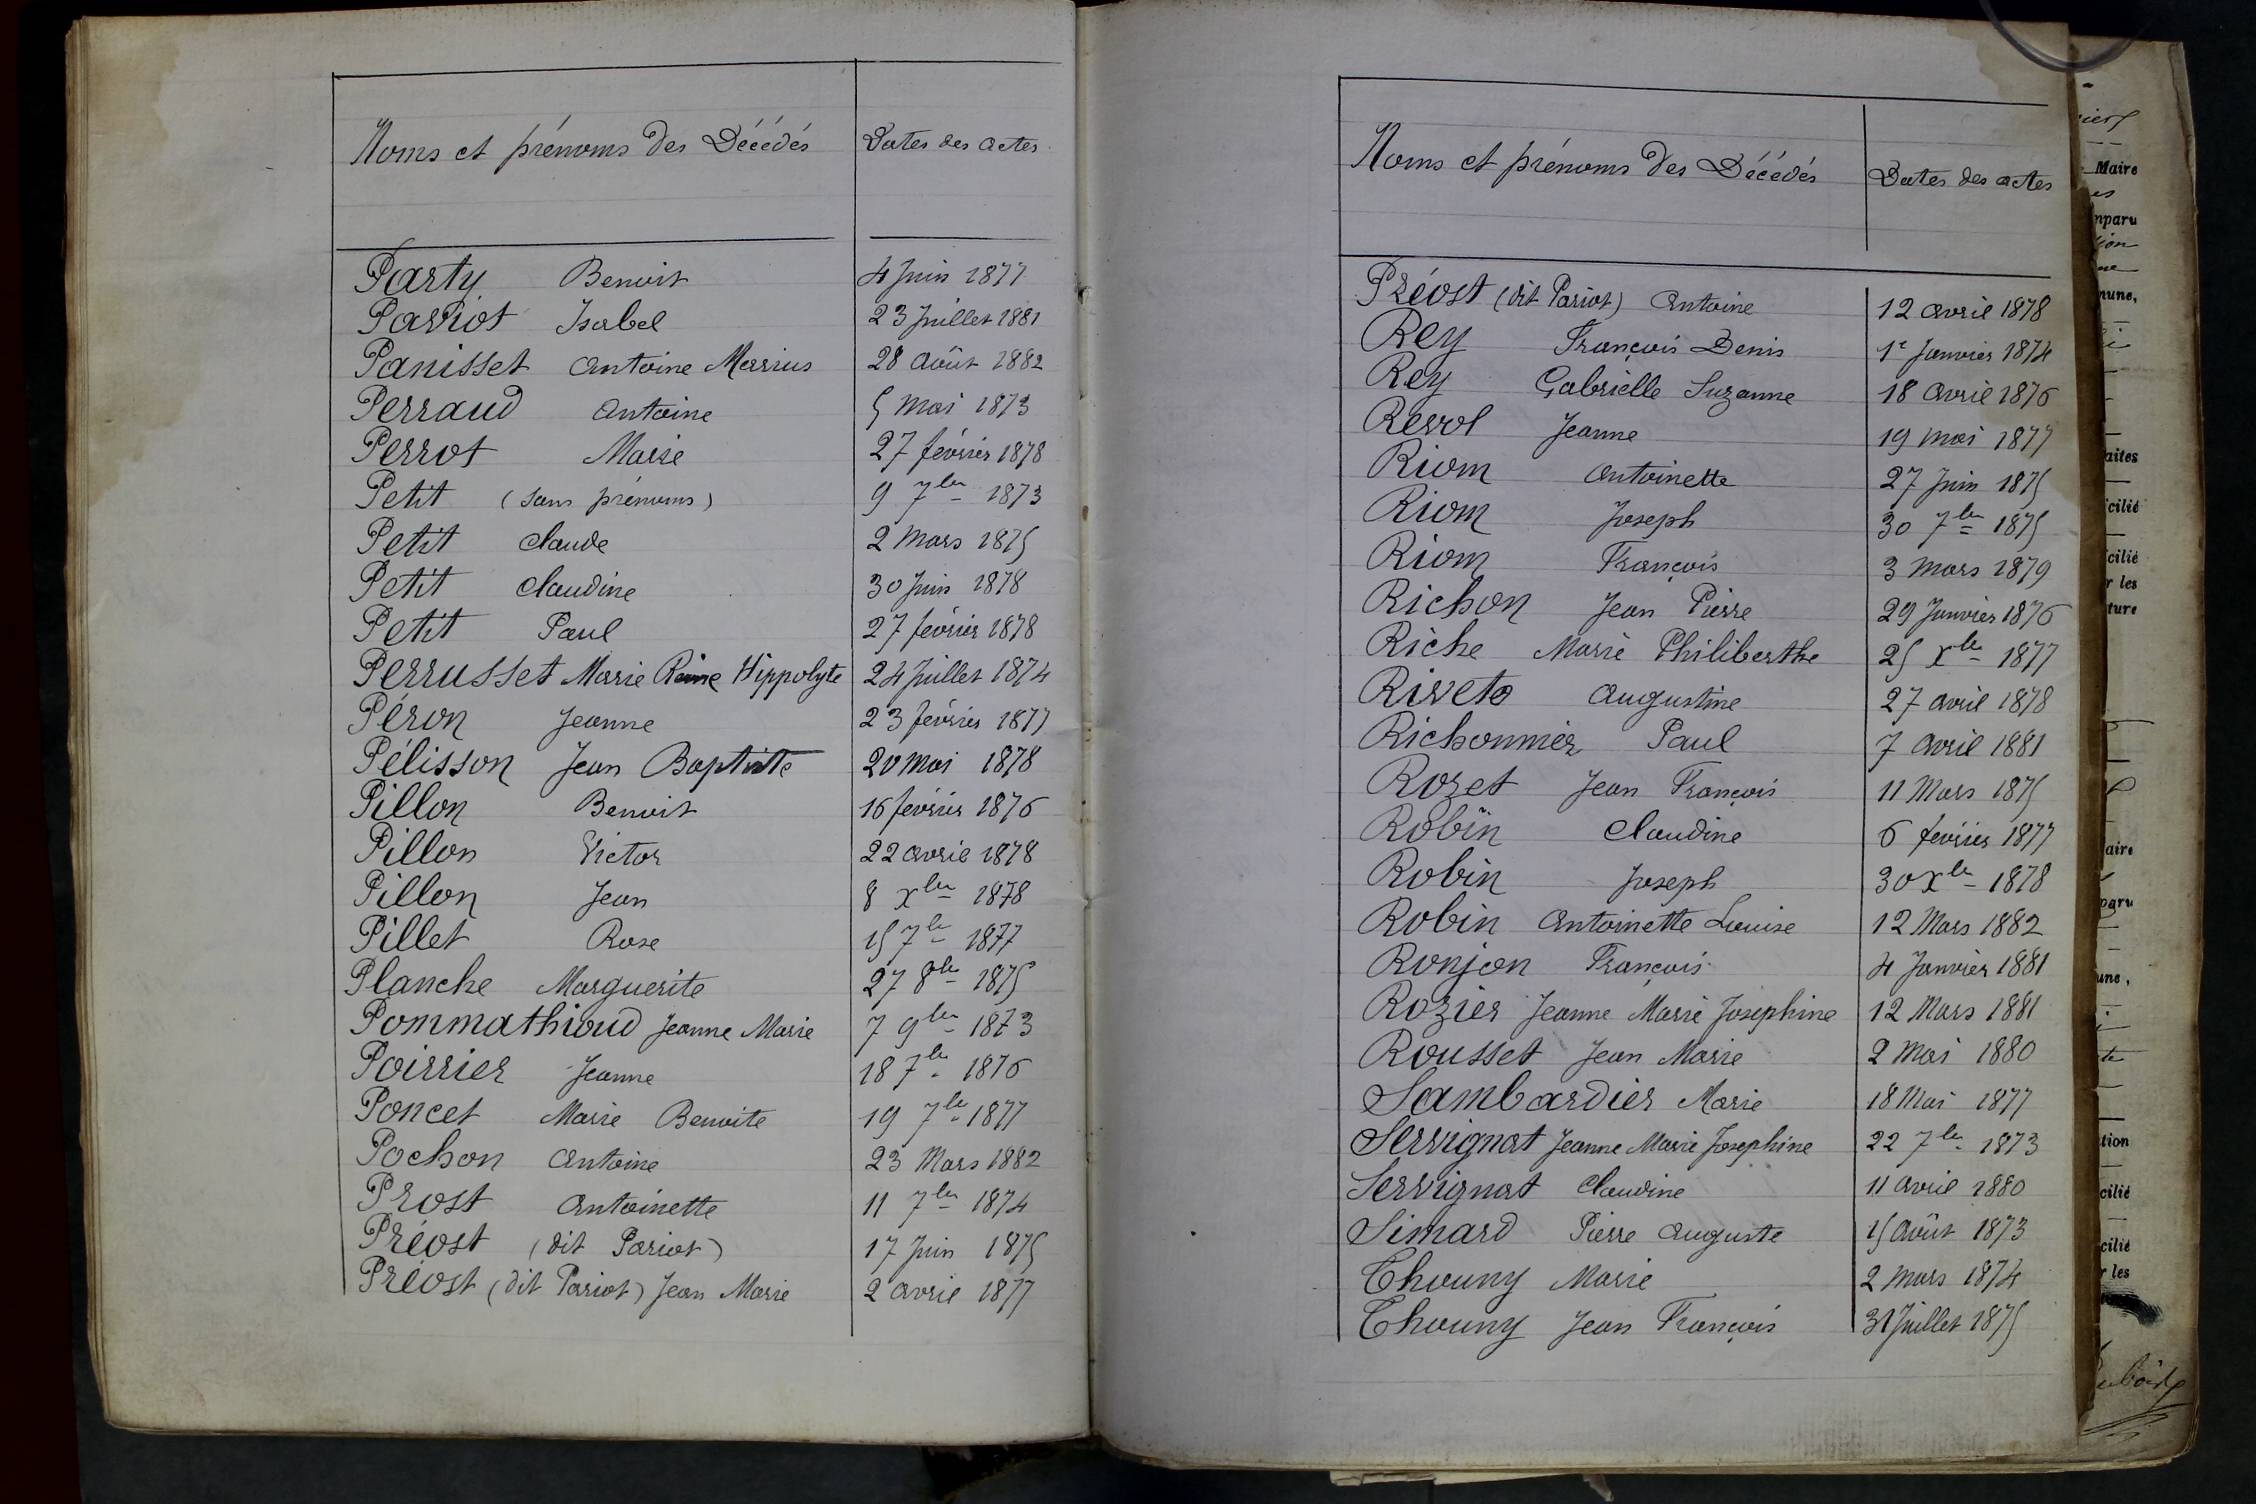 Noms et prénoms des Décédés Dates des actes
Party Benoit 4 Juin 1877
Pariot Isabel 23 Juillet 1881
Panisset Antoine Marius 28 Août 1882
Perraud Antoine 5 Mai 1873
Perrot Marie 27 février 1878
Petit (sans prénoms) 9 7bre 1873
Petit Claude 2 Mars 1875
Petit Claudine 30 Juin 1878
Petit Paul 27 février 1878
Perrusset Marie Reine Hippolyte 24 Juillet 1874
Péron Jeanne 23 février 1877
Pélisson Jean Baptiste 20 Mai 1878
Pillon Benoit 16 février 1876
Pillon Victor 22 Avril 1878
Pillon Jean 8 Xbre 1878
Pillet Rose 15 7bre 1877
Planche Marguerite 27 8bre 1875
Pommathioud Jeanne Marie 7 9bre 1873
Poirrier Jeanne 18 7bre 1876
Poncet Marie Benoite 19 7bre 1877
Pochon Antoine 23 Mars 1882
Prost Antoinette 11 7bre 1874
Préost (dit Pariot) 17 Juin 1875
Préost (dit Pariot) Jean Marie 2 Avril 1877
Noms et prénoms des Décédés Dates des actes
Préost (dit Pariot) Antoine 12 Avril 1878
Rey François Denis 1e Janvier 1874
Rey Gabrielle Suzanne 18 Avril 1876
Revol Jeanne 19 Mai 1877
Riom Antoinette 27 Juin 1875
Riom Joseph 30 7bre 1875
Riom François 3 Mars 1879
Richon Jean Pierre 29 Janvier 1876
Riche Marie Philiberthe 25 Xbre 1877
Riveto Augustine 27 Avril 1878
Richonnier Paul 7 Avril 1881
Rozet Jean François 11 Mars 1875
Robin Claudine 6 février 1877
Robin Joseph 30 Xbre 1878
Robin Antoinette Louise 12 Mars 1882
Ronjon François 4 Janvier 1881
Rozier Jeanne Marie Josephine 12 Mars 1881
Rousset Jean Marie 2 Mai 1880
Sambardier Marie 18 Mai 1877
Servignat Jeanne Marie Josephine 22 7bre 1873
Servignat Claudine 11 Avril 1880
Simard Pierre Auguste 15 Août 1873
Thouny Marie 2 Mars 1874
Thouny Jean François 31 Juillet 1875
Maire
mparu
mune,
aites
cilié
cilié
r les
ture
aire
paru
une,
tion
cilié
cilié
r les